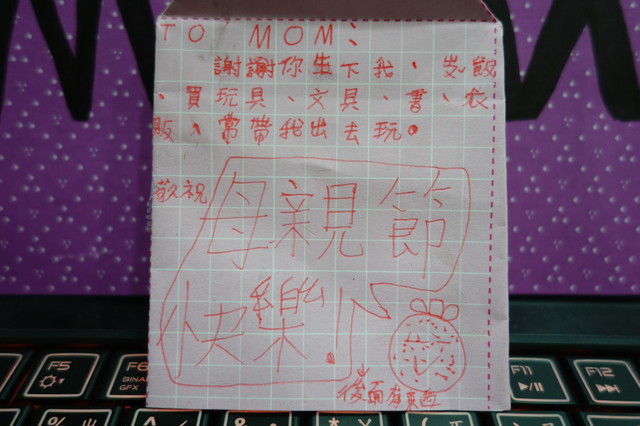 TO MOM:
謝謝你生下我、煮飯
、買玩具、文具、書、衣
服、常帶我出去玩。
敬祝
母親節
快樂!
後面有東西
F5
F6
BINARY
GFX
F11
F12